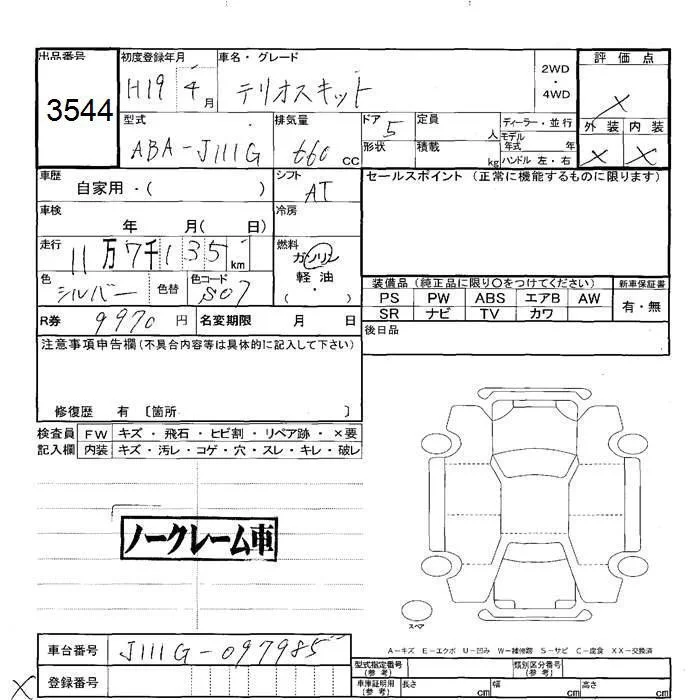 出品番号 初度登録年月 車名・グレード 評価点
3544 H19 4月 テリオスキット 2WD・4WD X
外装 内装
X X
型式 排気量 ドア 定員 人 ディーラー・並行
ABA-J111G 660 cc 5 モデル年式 年
形状 積載 kg ハンドル 左・右
車歴 シフト セールスポイント (正常に機能するものに限ります)
自家用・( ) AT
車検 冷房
年 月( 日)
走行 燃料
11万7千135km ガソリン
色 色替 色コード 軽油
シルバー S07 (・)
装備品 (純正品に限り○をつけてください) 新車保証書
PS PW ABS エアB AW 有・無
SR ナビ TV カワ
R券 9970 円 名変期限 月 日
後日品
注意事項申告欄(不具合内容等は具体的に記入して下さい)
修復歴 有 〔箇所 〕
検査員 FW キズ・飛石・ヒビ割・リペア跡・×要
記入欄 内装 キズ・汚レ・コゲ・穴・スレ・キレ・破レ
ノークレーム車
スペア
A-キズ E-エクボ U-凹み W-補修跡 S-サビ C-腐食 XX-交換済
車台番号 J111G-097985
型式指定番号 (参考) 類別区分番号 (参考)
X 登録番号
車庫証明用 (参考) 長さ cm 幅 cm 高さ cm